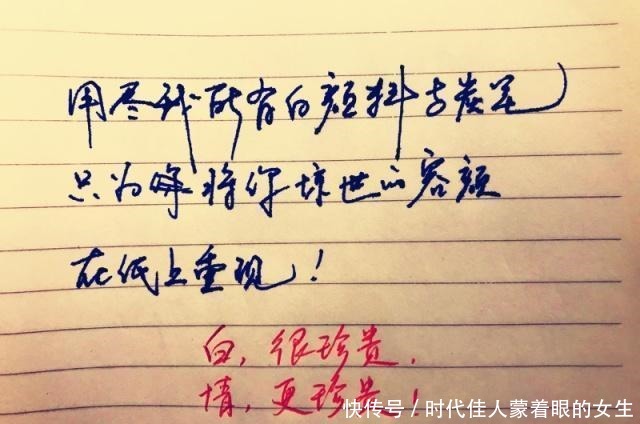 用尽我所有的颜料与炭笔
只为将你惊世的容颜
在纸上重现！
白，很珍贵，
情，更珍贵！
快传号/时代佳人蒙着眼的女生